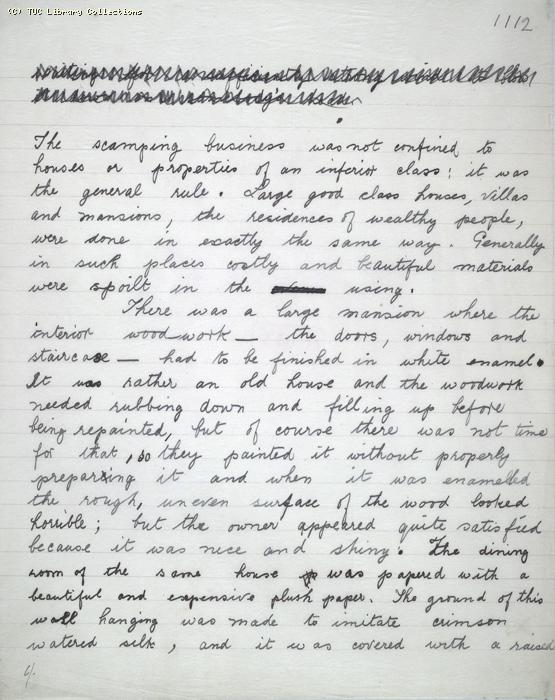 (C) TUC Library Collections
1112
The scamping business was not confined to
houses or properties of an inferior class: it was
the general rule. Large good class houses, villas
and mansions, the residences of wealthy people,
were done in exactly the same way. Generally
in such places costly and beautiful materials
were spoilt in the using.
There was a large mansion where the
interior woodwork — the doors, windows and
staircase — had to be finished in white enamel.
It was rather an old house and the woodwork
needed rubbing down and filling up before
being repainted, but of course there was not time
for that, so they painted it without properly
preparing it and when it was enamelled
the rough, uneven surface of the wood looked
horrible; but the owner appeared quite satisfied
because it was nice and shiny. The dining
room of the same house was papered with a
beautiful and expensive plush paper. The ground of this
wall hanging was made to imitate crimson
watered silk, and it was covered with a raised